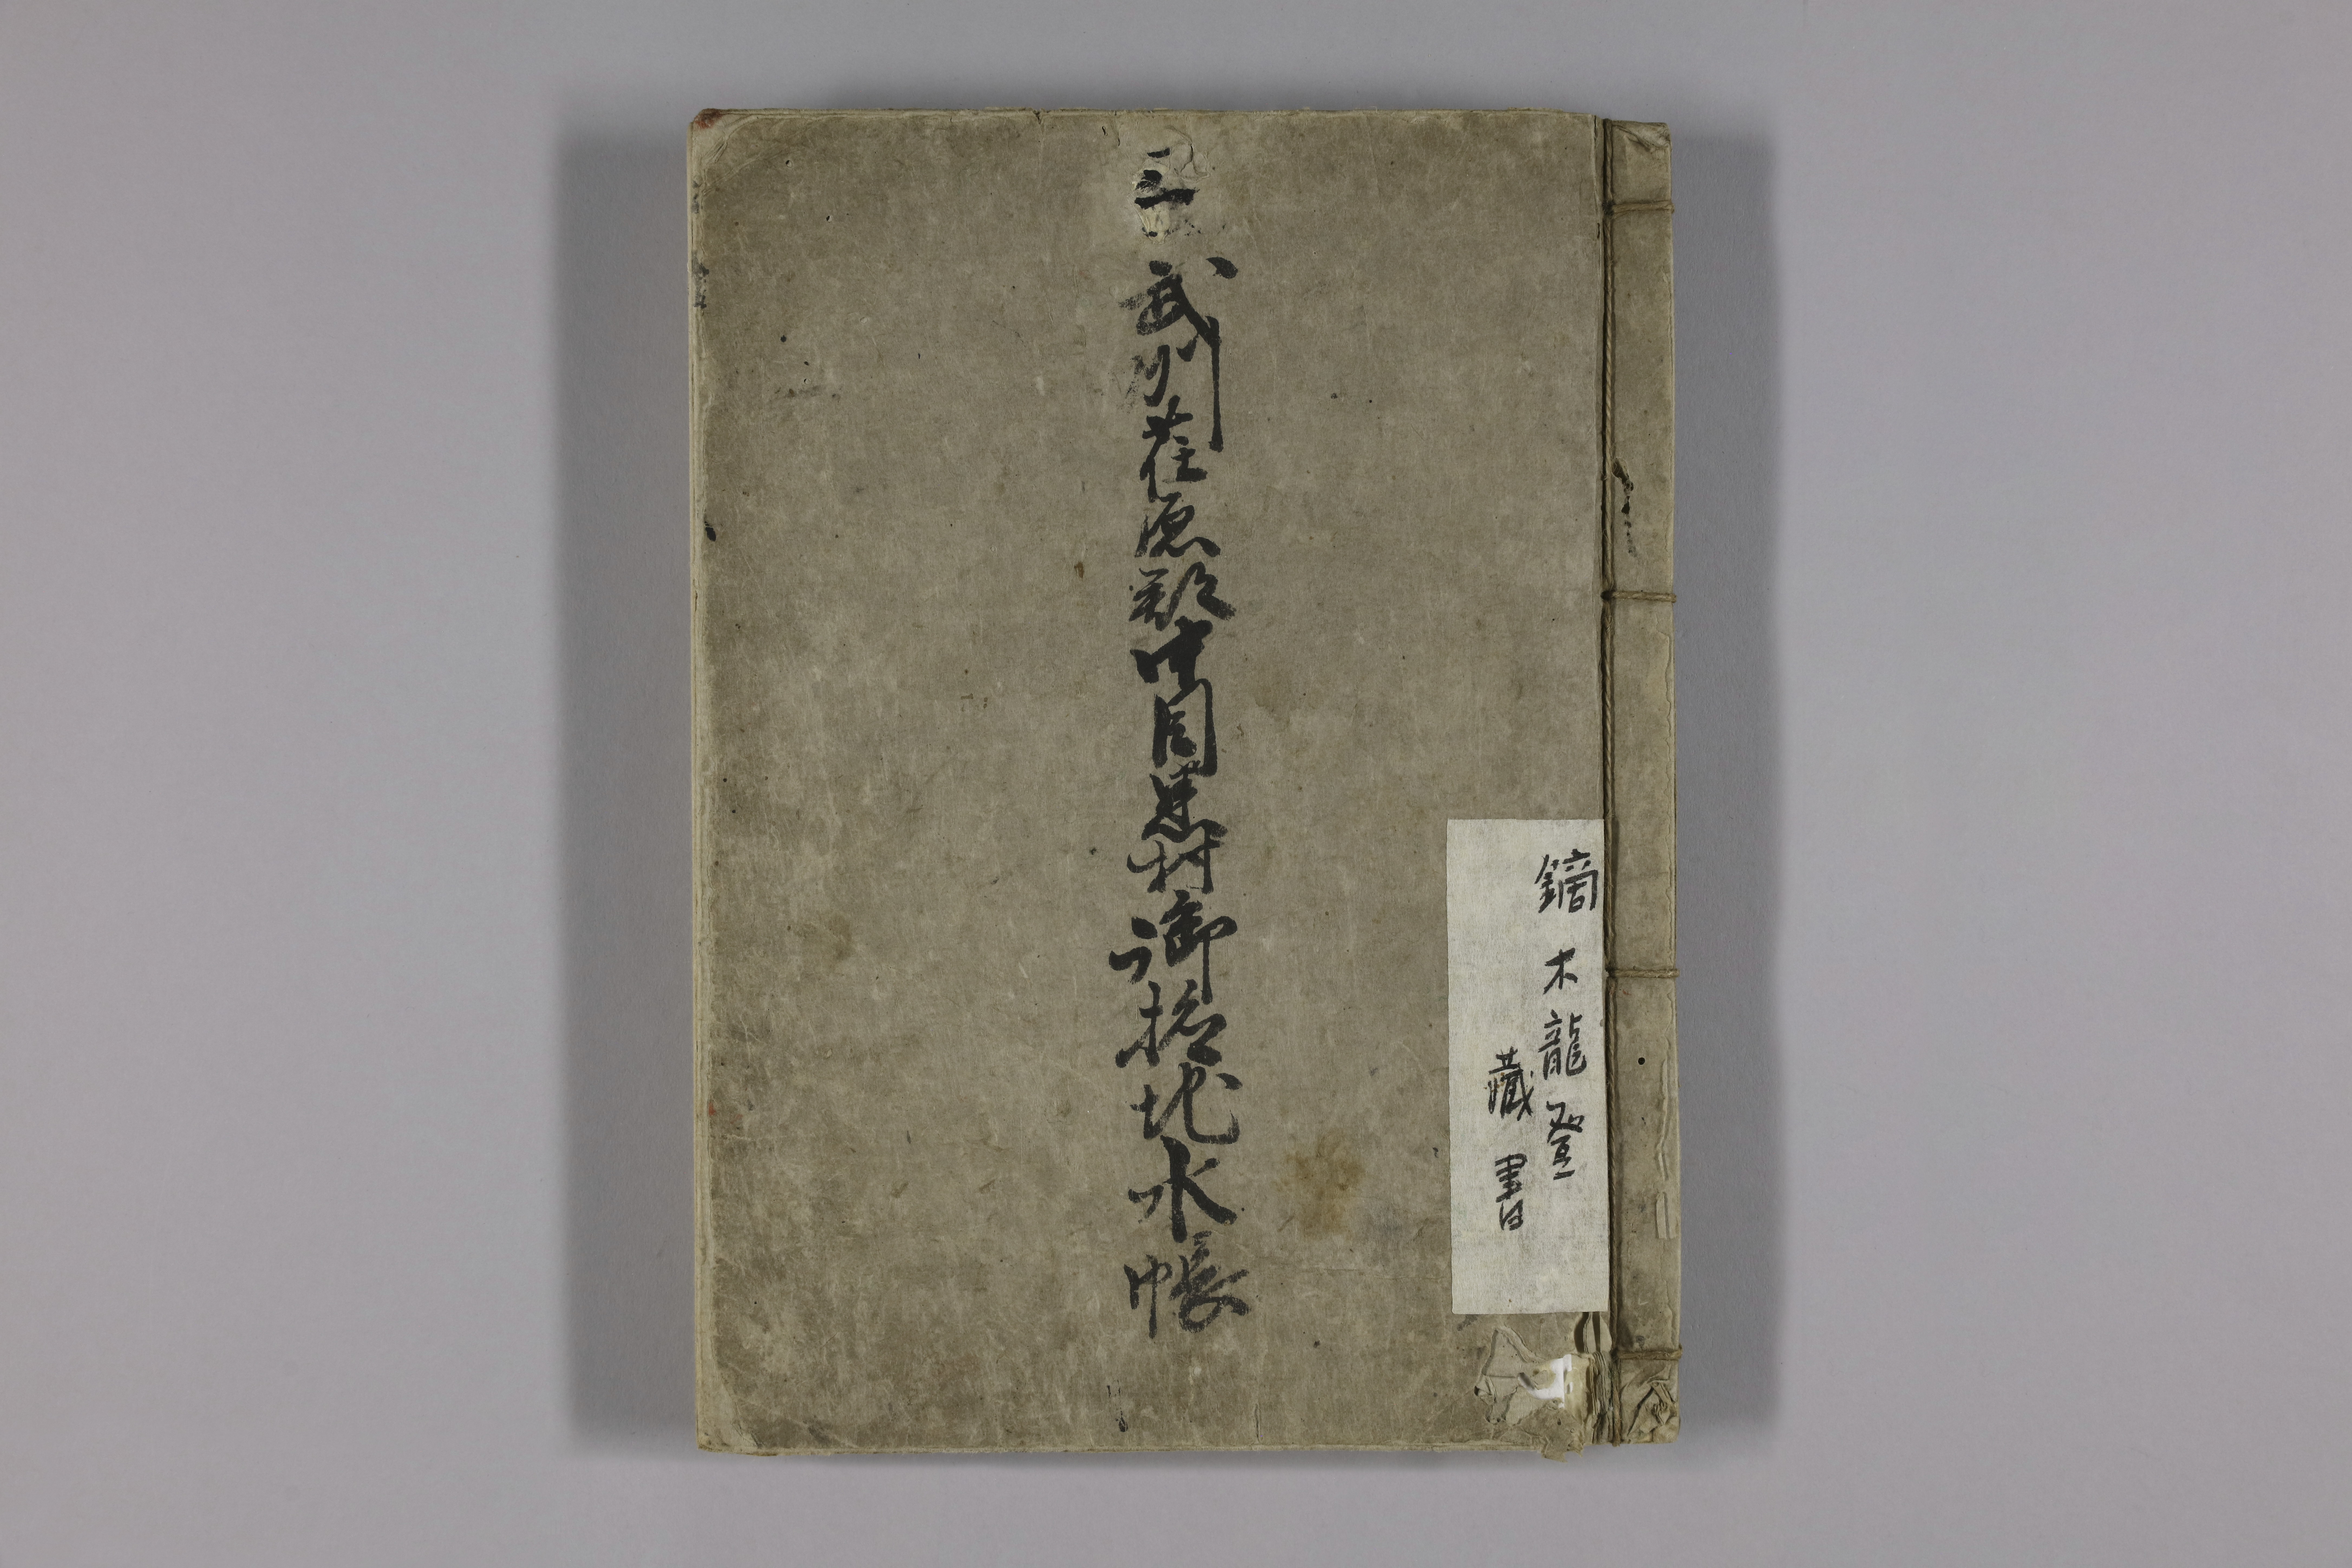 鏑木龍登
藏書
三
武州荏原郡中目黒村御検地水帳